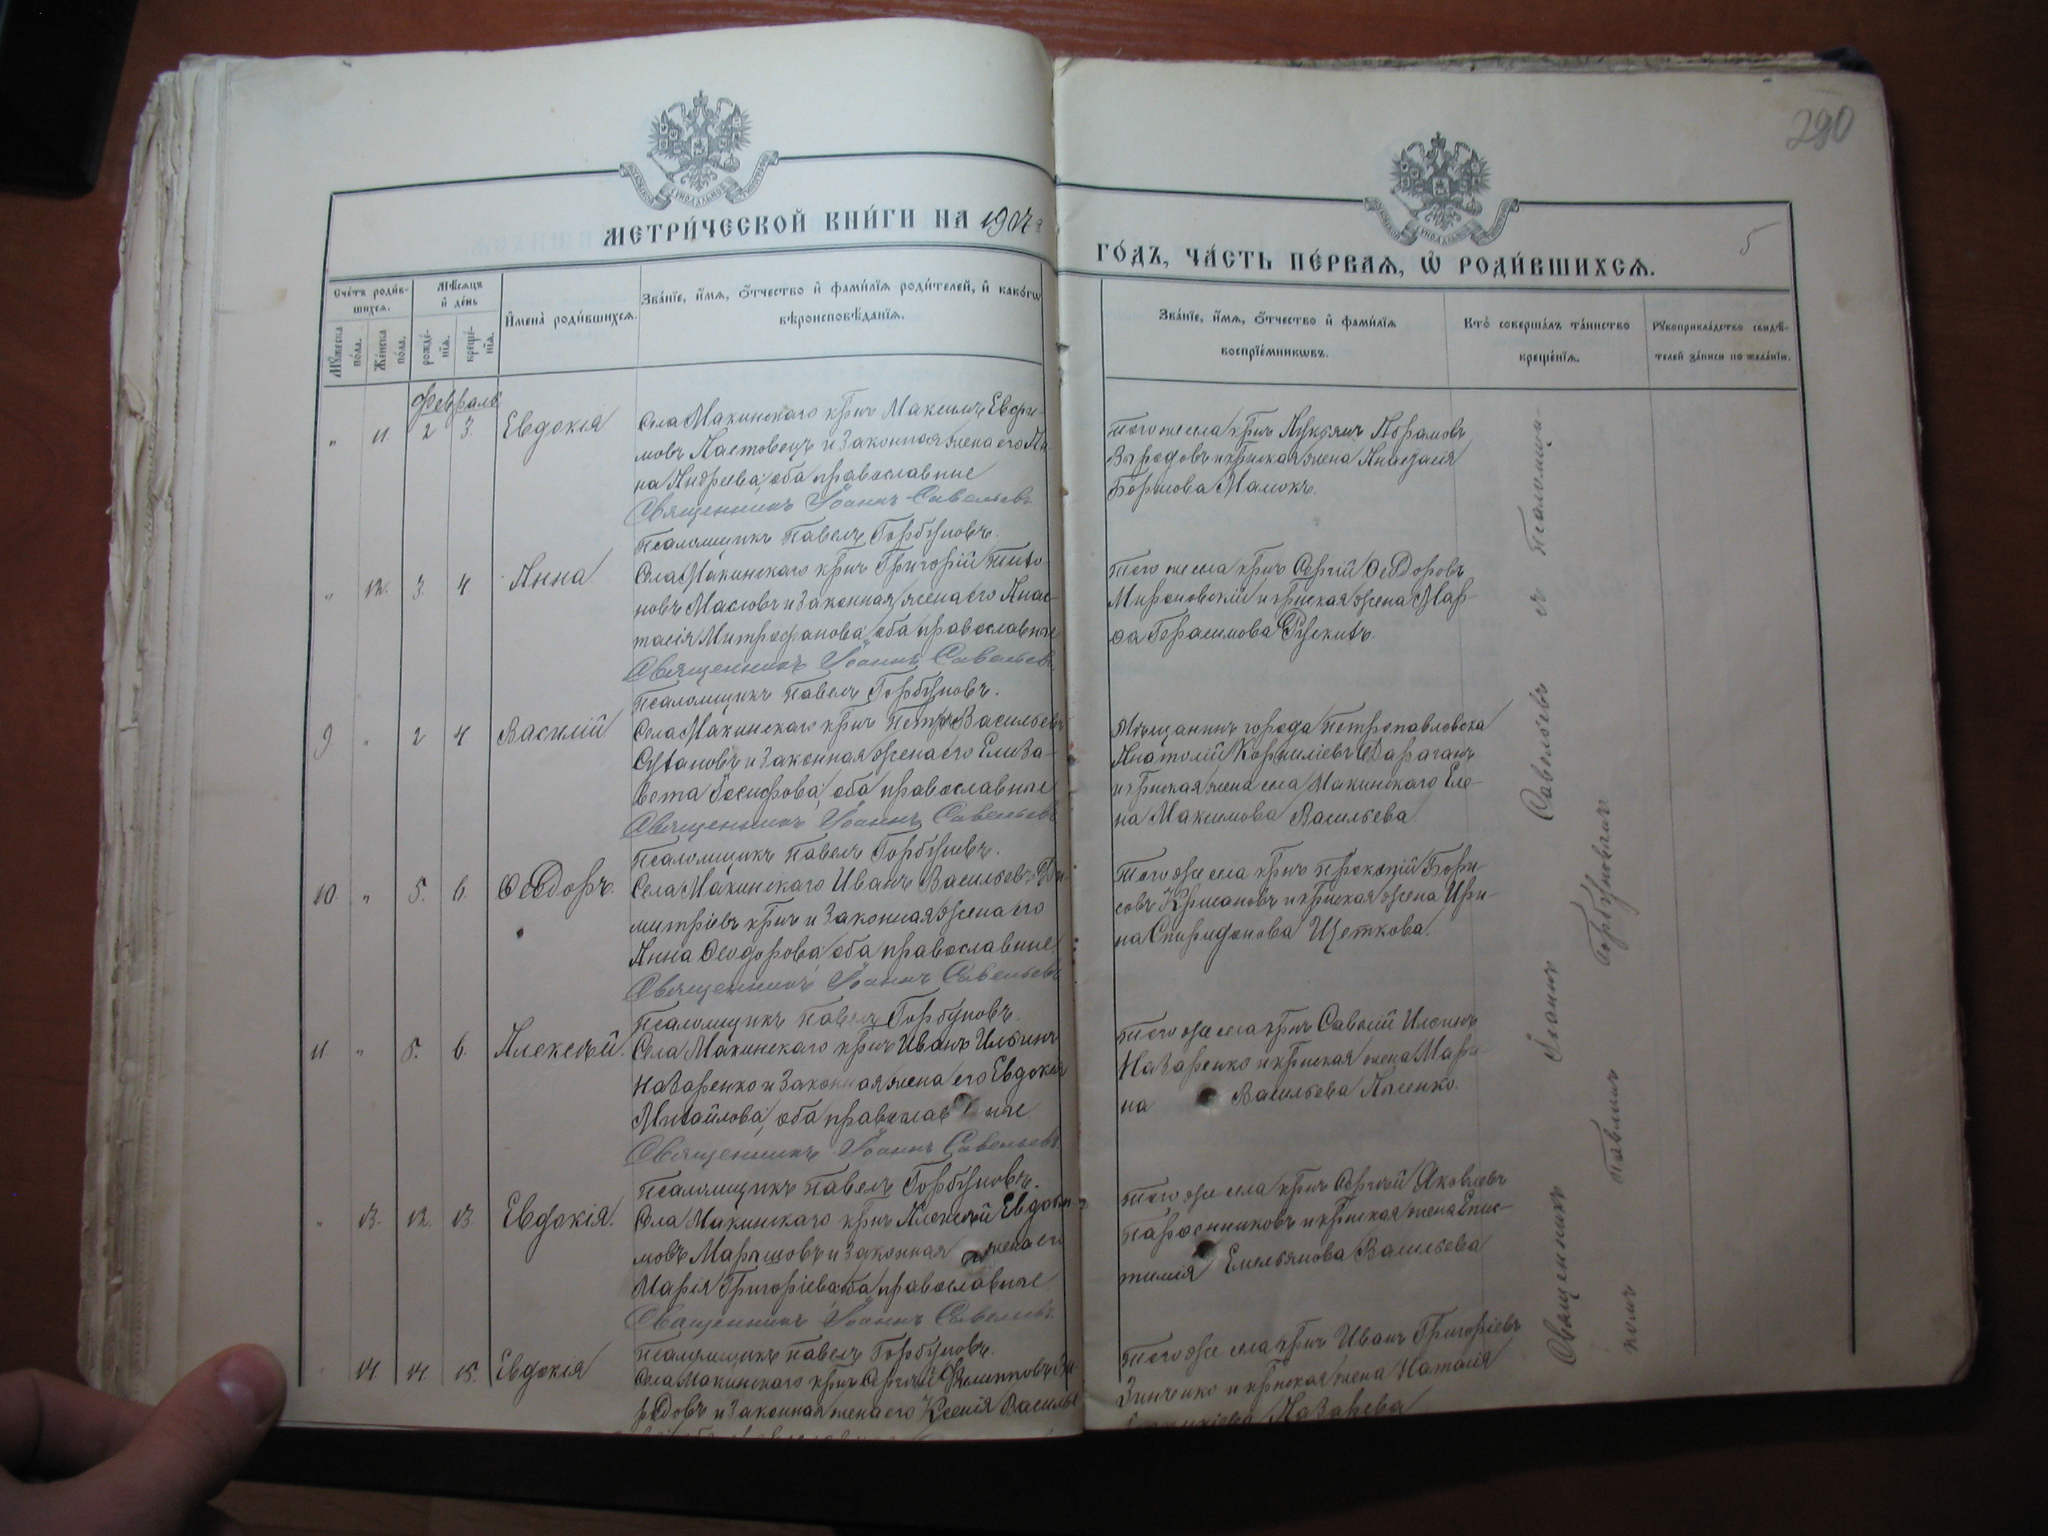 290
5
МЕТРИ́ЧЕСКОЙ КНИ́ГИ НА 1904
ГО́ДЪ, ЧА́СТЬ ПЕ́РВАѦ, Ѡ҆ РОДИ́ВШИХСѦ.
Сче́тъ роди́в-
шихсѧ.
Мѣ́сѧцъ
и҆ де́нь
Мꙋ́жеска
по́ла.
Же́нска
по́ла.
рожде́-
нїѧ.
креще́-
нїѧ.
И҆мена̀ роди́вшихсѧ.
Зва́нїе, и҆́мѧ, ѻ҆́тчество и҆ фами́лїѧ роди́телей, и҆ како́гѡ
вѣроисповѣ́данїѧ.
Зва́нїе, и҆́мѧ, ѻ҆́тчество и҆ фами́лїѧ
воспрїе́мникѡвъ.
Кто̀ соверша́лъ та́инство
креще́нїѧ.
Рꙋкоприкла́дство свидѣ́-
телей за́писи по жела́нїю.
Февраль
" 11 2 3. Евдокія
Села Макинскаго крнъ Максимъ Евфи-
мовъ Ластовецъ и законная жена его Ан-
на Андреева, оба православные
Священникъ Іоаннъ Савельевъ
Псаломщикъ Павелъ Горбуновъ.
того же села крнъ Лукьянъ Абрамовъ
и крнская жена Анастасія
Борисова
" 12. 3. 4. Анна
Села Макинскаго крнъ Григорій Тито-
новъ Масловъ и законная жена его Анас-
тасія Митрофанова, оба православные
Священникъ Іоаннъ Савельевъ
Псаломщикъ Павелъ Горбуновъ.
того же села крнъ Сергій Ѳеодоровъ
Мироновскій и крнская жена Мар-
ѳа Герасимова
9 " 2 4 Василій
Села Макинскаго крнъ Петръ Васильевъ
и законная жена его Елиза-
вета Іосифова, оба православные
Священникъ Іоаннъ Савельевъ
Псаломщикъ Павелъ Горбуновъ.
Мѣщанинъ города Петропавловска
Анатолій Корниліевъ Дараганъ
и крнская жена села Макинскаго Еле-
на Максимова Васильева
10. " 5. 6. Ѳеодоръ
Села Макинскаго Иванъ Васильевъ Ди-
митріевъ крнъ и законная жена его
Анна Ѳеодорова, оба православные
Священникъ Іоаннъ Савельевъ
Псаломщикъ Павелъ Горбуновъ.
того же села крнъ Прокопій Бори-
совъ и крнская жена Ири-
на Спиридонова Щеткова.
11 " 5. 6. Алексѣй.
Села Макинскаго крнъ Иванъ Ильинъ
Назаренко и законная жена его Евдокія
Михайлова, оба православные
Священникъ Іоаннъ Савельевъ
Псаломщикъ Павелъ Горбуновъ.
того же села крнъ Савелій Ильинъ
Назаренко и крнская жена Мари-
на Васильева
" 13. 12. 13. Евдокія.
Села Макинскаго крнъ Алексѣй Евдоки-
мовъ и законная жена его
Марія Григоріева, оба православные
Священникъ Іоаннъ Савельевъ
Псаломщикъ Павелъ Горбуновъ.
того же села крнъ Сергѣй Яковлевъ
и крнская жена Епис-
тимія Емельянова Васильева
14 14 15. Евдокія
Села Макинскаго крнъ Сергѣй Филипповъ
и законная жена его Ксенія Василье
того же села крнъ Иванъ Григоріевъ
Зинченко и крнская жена Наталія
Назарева
Священникъ Іоаннъ Савельевъ съ псаломщи-
комъ Павломъ Горбуновымъ